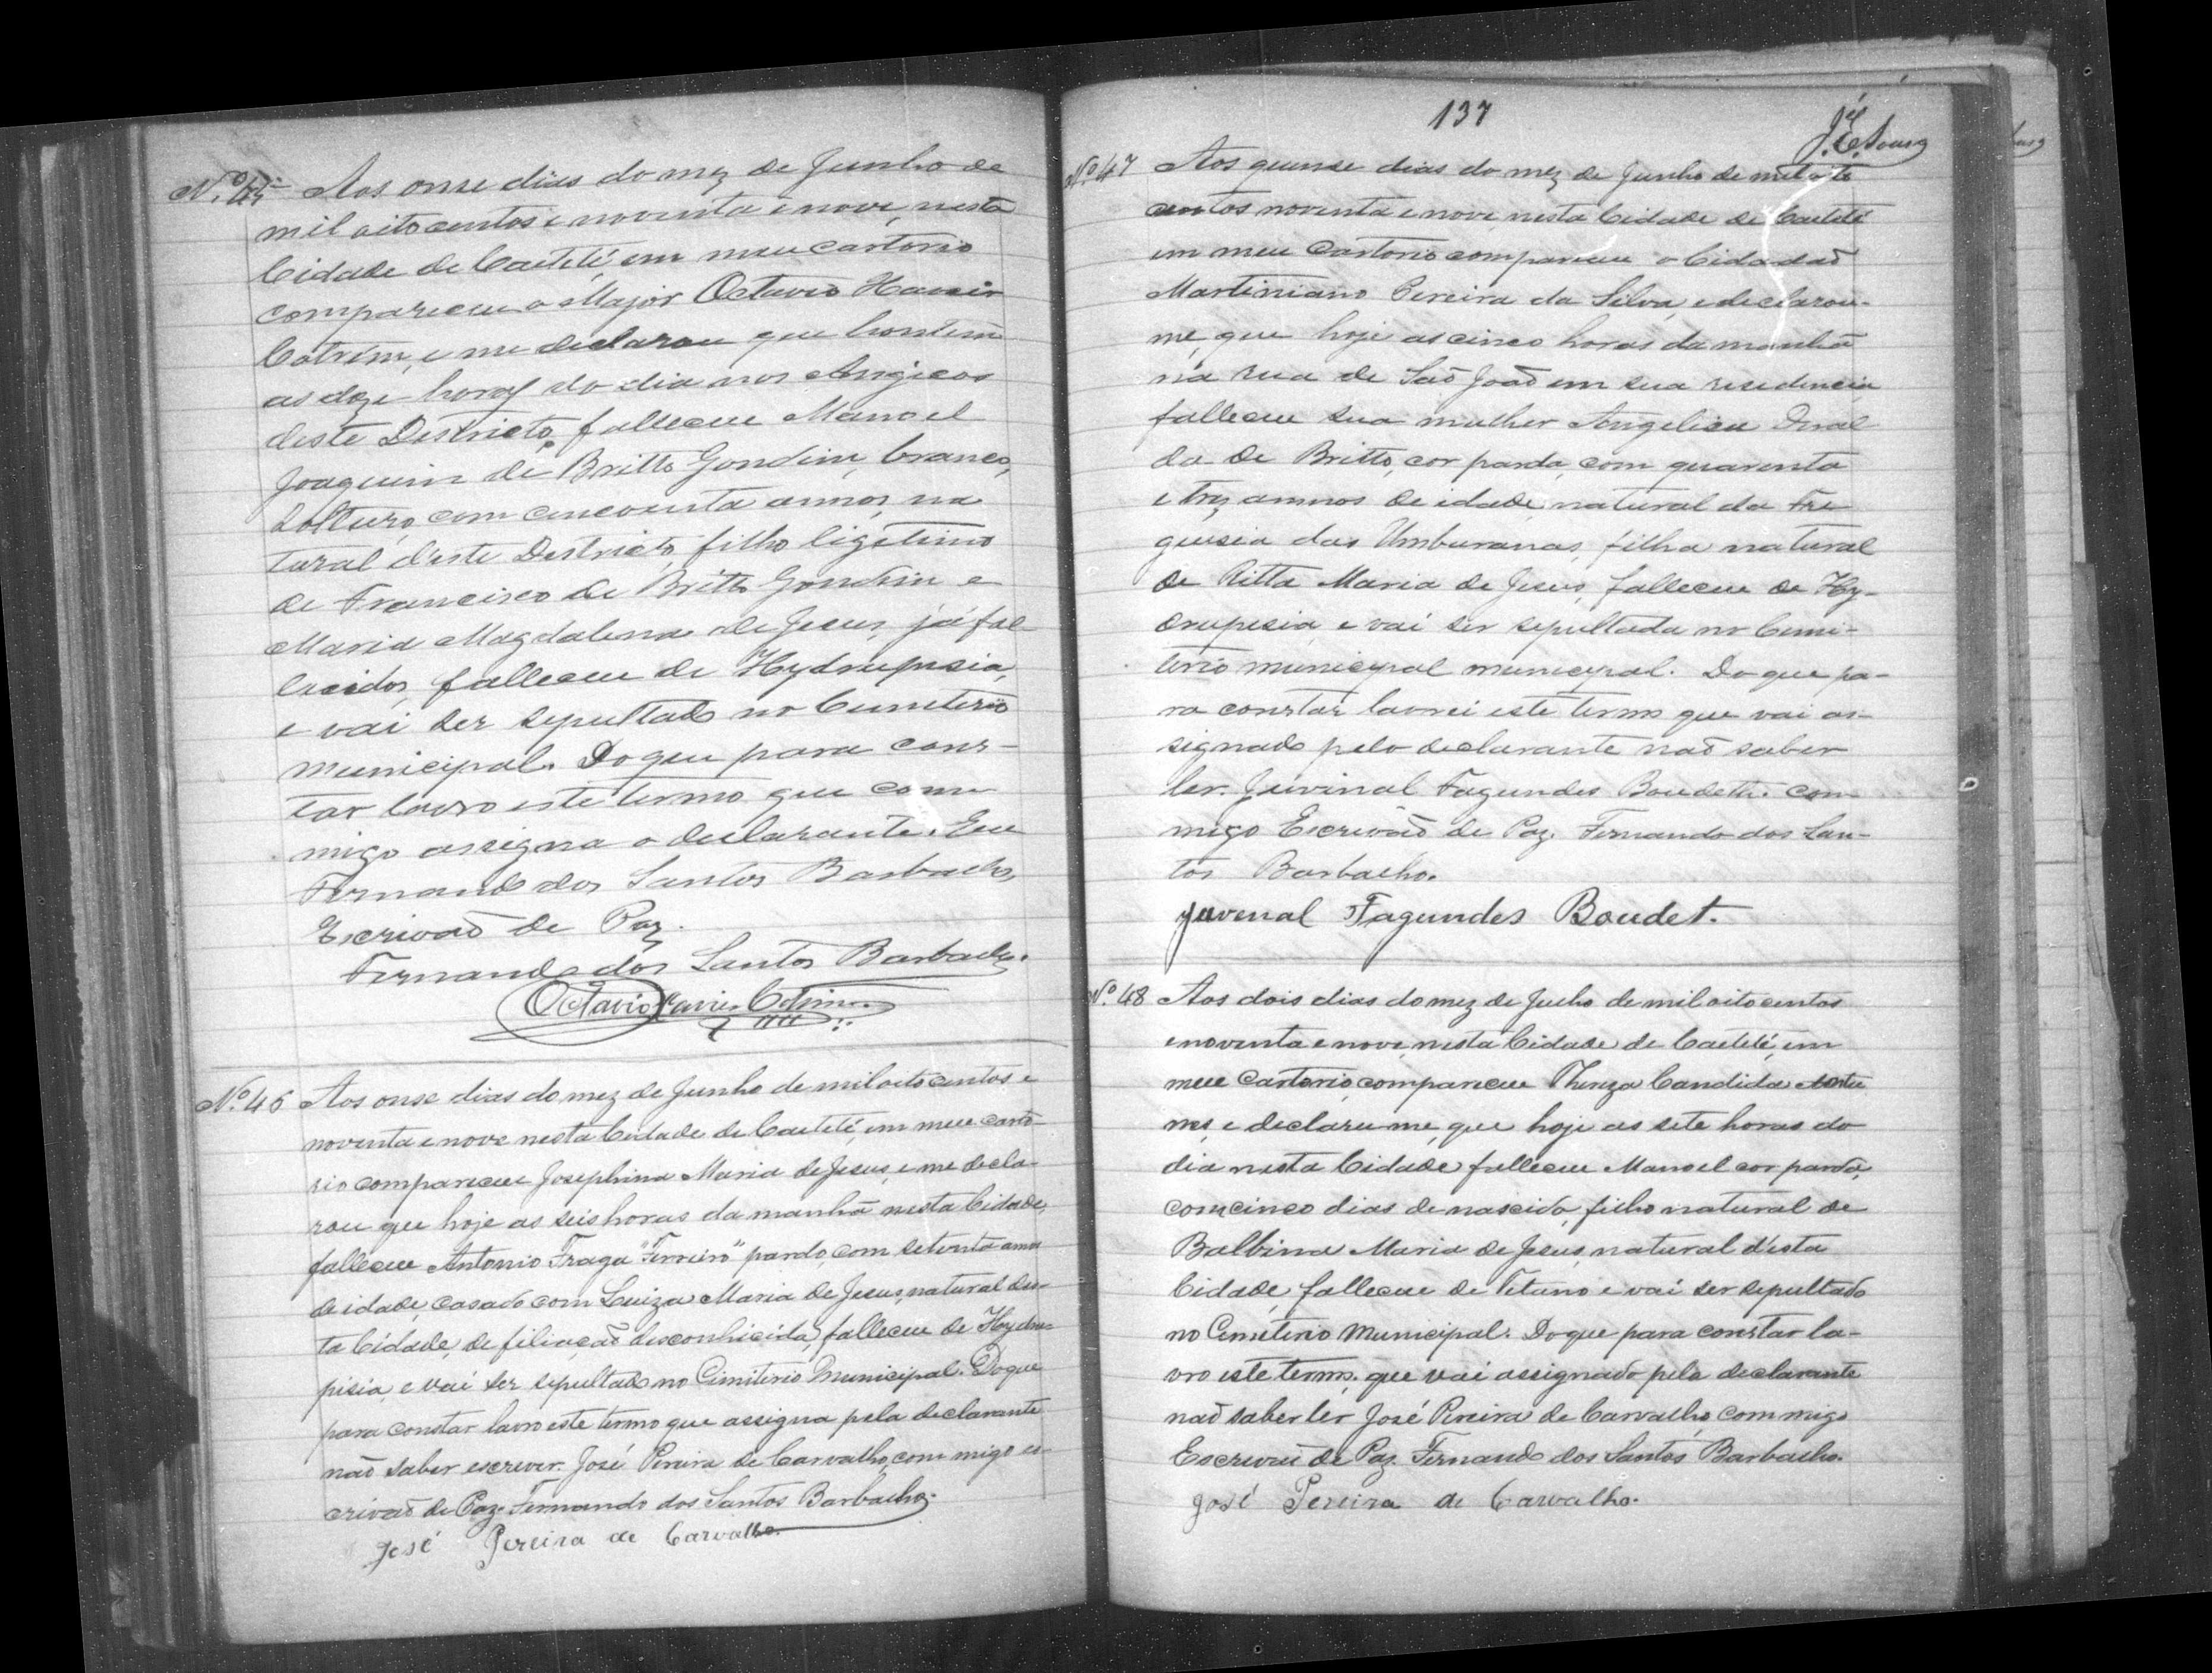 Nº 45 Aos onse dias do mez de Junho de
mil oitocentos e noventa e nove, nesta
Cidade de Caeteté, em meu cartorio
compareceu o Major Octavio Xavier
Cotrim, e me declarou que hontem
as doze horas do dia nos Angicos
deste Districto, falleceu Manoel
Joaquim de Britto Gondim, branco,
solteiro, com cincoenta annos, na
tural deste Destricto, filho ligetimo
de Francisco de Britto Gondim e
Maria Magdalena de Jesus, já fal-
lecidos, falleceu de Hydrupesia,
e vai ser sepultado no Cemiterio
municipal. Do que para cons-
tar lavro este termo que com
migo assigna o declarante. Eu
Fernando dos Santos Barbacho,
Escrivaõ de Paz.
Fernando dos Santos Barbacho.
Octavio Xavier Cotrim.
Nº 46 Aos onse dias do mez de Junho de mil oitocentos e
noventa e nove nesta Cidade de Caeteté, em meu carto-
rio compareceu Josephina Maria de Jesus, e me decla-
rou que hoje as seis horas da manhã nesta Cidade,
falleceu Antonio Fraga "Ferreiro" pardo, com setenta annos
de idade, casado com Luiza Maria de Jesus, natural des-
ta Cidade, de filiaçaõ desconhicida, falleceu de Hydru-
pisia, e vai ser sepultado no Cimiterio Municipal. Do que
para constar lavro este termo que assigna pela declarante
naõ saber escrever. José Pereira de Carvalho, com migo es-
crivaõ de Paz. Fernando dos Santos Barbacho.
José Pereira de Carvalho.
137
J. E. Sousa
Nº 47 Aos quinse dias do mez de Junho de mil oito
centos noventa e nove, nesta Cidade de Caeteté
em meu Cartorio compareceu o Cidadaõ
Martiniano Pereira da Silva, e declarou-
me, que hoje as cinco horas da manhã
na rua de Saõ Joaõ em sua residencia
falleceu sua mulher Angelica Deral
da de Britto, cor parda, com quarenta
e trez annos de idade, natural da Fre
guesia das Umburanas, filha natural
de Ritta Maria de Jesus, falleceu de Hy-
drupesia, e vai ser sepultada no Cemi-
terio municipal municipal. Do que pa-
ra constar lavrei este termo que vai as-
signado pelo declarante naõ saber
ler. Juvinal Fagundes Boudett. com
migo Escrivaõ de Paz. Fernando dos San-
tos Barbacho.
Juvenal Fagundes Boudet.
Nº 48 Aos dois dias do mez de Julho de mil oitocentos
e noventa e nove, nesta Cidade de Caeteté, em
meu Cartorio, compareceu Thereza Candida Antu
nes, e declarou me, que hoje as sete horas do
dia nesta Cidade falleceu Manoel cor parda,
com cinco dias de nascido, filho natural de
Balbina Maria de Jesus, natural d'esta
Cidade, falleceu de Tetano e vai ser sepultado
no Cemeterio Municipal. Do que para constar la-
vro este termo. que vai assignado pela declarante
naõ saber ler José Pereira de Carvalho, com migo
Escrivaõ de Paz. Fernando dos Santos Barbacho.
José Pereira de Carvalho.